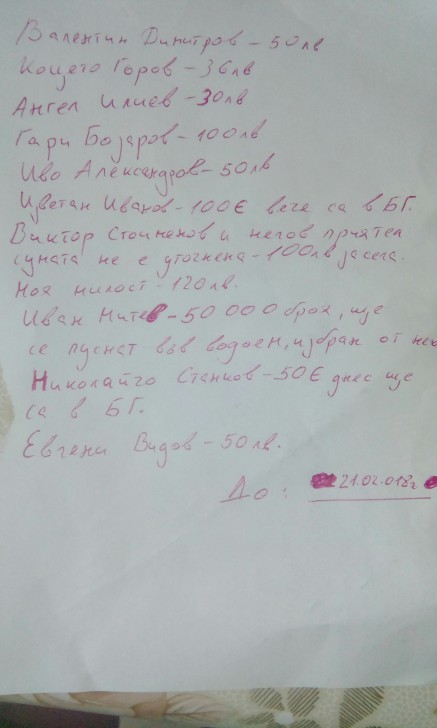 Валентин Димитров - 50лв
Коцето Горов - 36лв
Ангел Илиев - 30лв
Гари Бозаров - 100лв
Иво Александров - 50лв
Цветан Иванов - 100€ вече са в БГ.
Виктор Стоименов и негов приятел
сумата не е уточнена - 100лв засега.
Моя милост - 120лв.
Иван Митев - 50 000 броя, ще
се пуснат във водоем, избран от него
Николайчо Станков - 50€ днес ще
са в БГ.
Евгени Видов - 50лв.
До: 21.02.018г